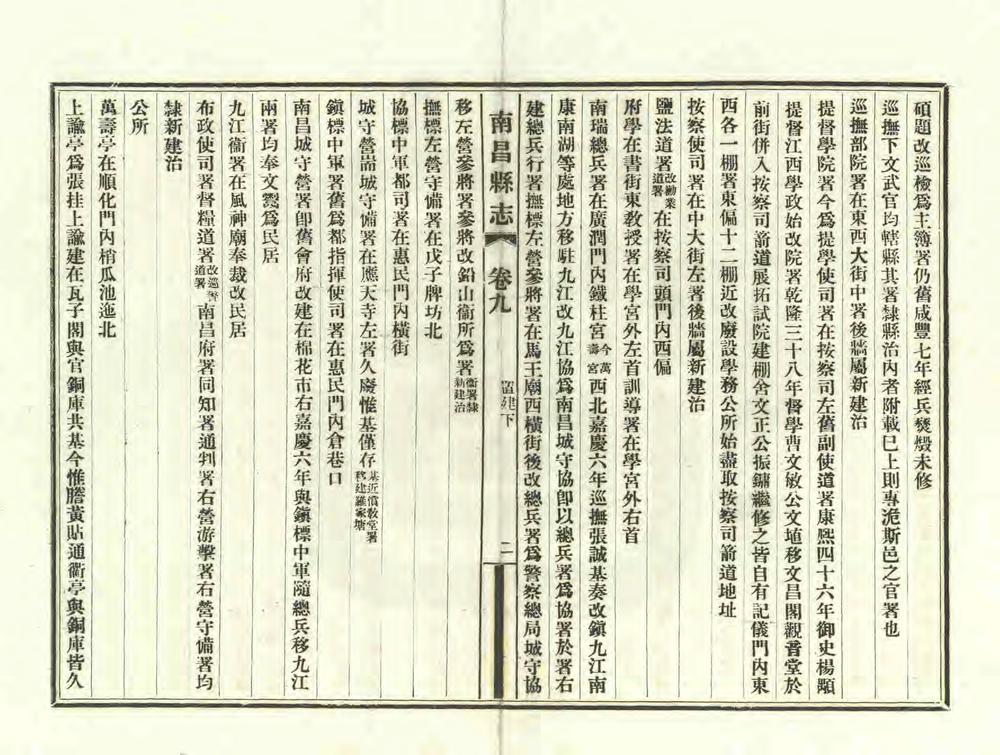 碩題改巡檢爲主簿署仍舊咸豐七年經兵燹燬未修
巡撫下文武官均轄縣其署隸縣治內者附載巳上則專涖斯邑之官署也
巡撫部院署在東西大街中署後牆屬新建治
提督學院署今爲提學使司署在按察司左舊副使道署康熙四十六年御史楊顒
提督江西學政始改院署乾隆三十八年督學曹文敏公文埴移文昌閣觀音堂於
前街併入按察司箭道展拓試院建棚舍文正公振鏞繼修之皆自有記儀門內東
西各一棚署東偏十二棚近改廢設學務公所始盡取按察司箭道地址
按察使司署在中大街左署後牆屬新建治
鹽法道署改勸業道署在按察司頭門內西偏
府學在書街東教授署在學宮外左首訓導署在學宮外右首
南瑞總兵署在廣潤門內鐵柱宮今萬壽宮西北嘉慶六年巡撫張誠基奏改鎭九江南
康南湖等處地方移駐九江改九江協爲南昌城守協卽以總兵署爲協署於署右
建總兵行署撫標左營參將署在馬王廟西橫街後改總兵署爲警察總局城守協
南昌縣志 卷九 營建下 二
移左營參將署參將改鉛山衞所爲署衞署隸新建治
撫標左營守備署在戊子牌坊北
協標中軍都司署在惠民門內橫街
城守營耑城守備署在應天寺左署久廢惟基僅存基近償教堂署移建羅家塘
鎭標中軍署舊爲都指揮使司署在惠民門內倉巷口
南昌城守營署卽舊會府改建在棉花市右嘉慶六年與鎭標中軍隨總兵移九江
兩署均奉文鬻爲民居
九江衞署在風神廟奉裁改民居
布政使司署督糧道署改巡警道署南昌府署同知署通判署右營游擊署右營守備署均
隸新建治
公所
萬壽亭在順化門內梢瓜池迤北
上諭亭爲張挂上諭建在瓦子閣與官銅庫共基今惟謄黃貼通衢亭與銅庫皆久